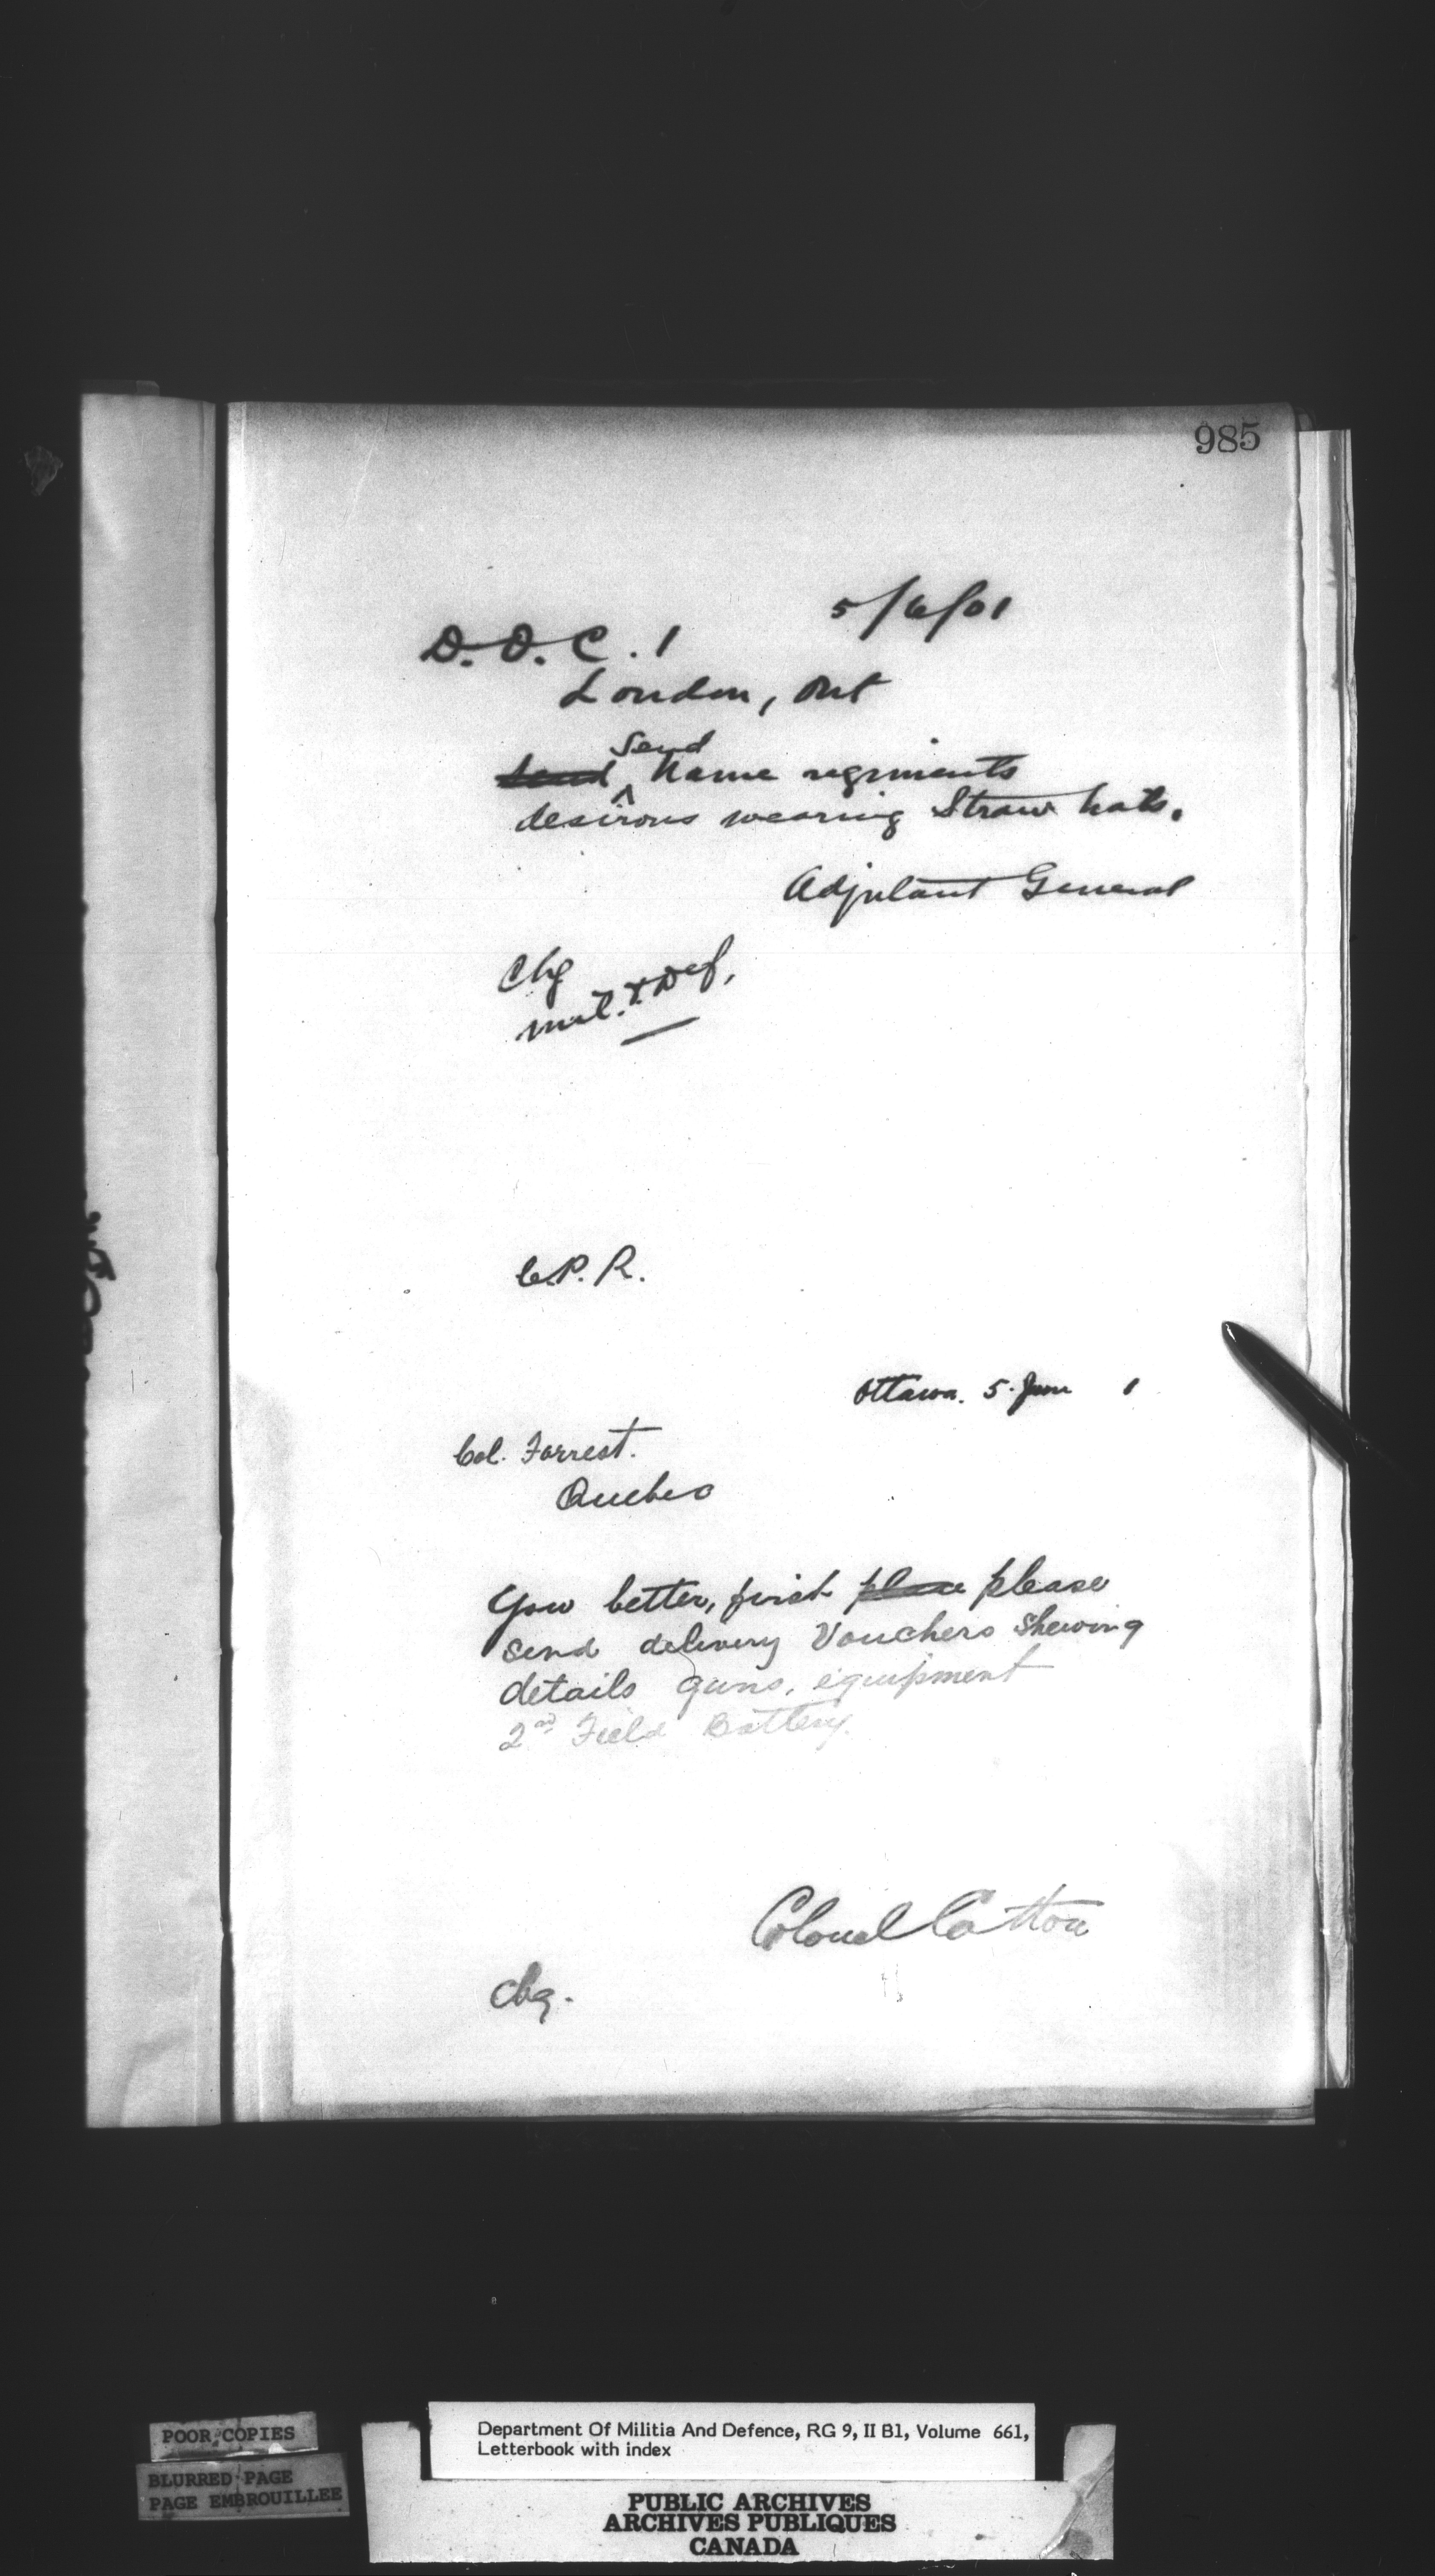 985
5/6/01
D.O.C. 1
London, Ont
Send
send ^ Name regiments
desirous wearing Straw hats.
Adjutant General
Chg
Mil. & Def.
C.P.R.
Ottawa. 5. June 1
Col. Forrest.
Quebec
Your letter, first please please
send delivery Vouchers shewing
details guns, equipment
2nd Field Battery.
Colonel Cotton
Chg.
POOR COPIES
BLURRED PAGE
PAGE EMBROUILLEE
Department Of Militia And Defence, RG 9, II B1, Volume 661,
Letterbook with index
PUBLIC ARCHIVES
ARCHIVES PUBLIQUES
CANADA